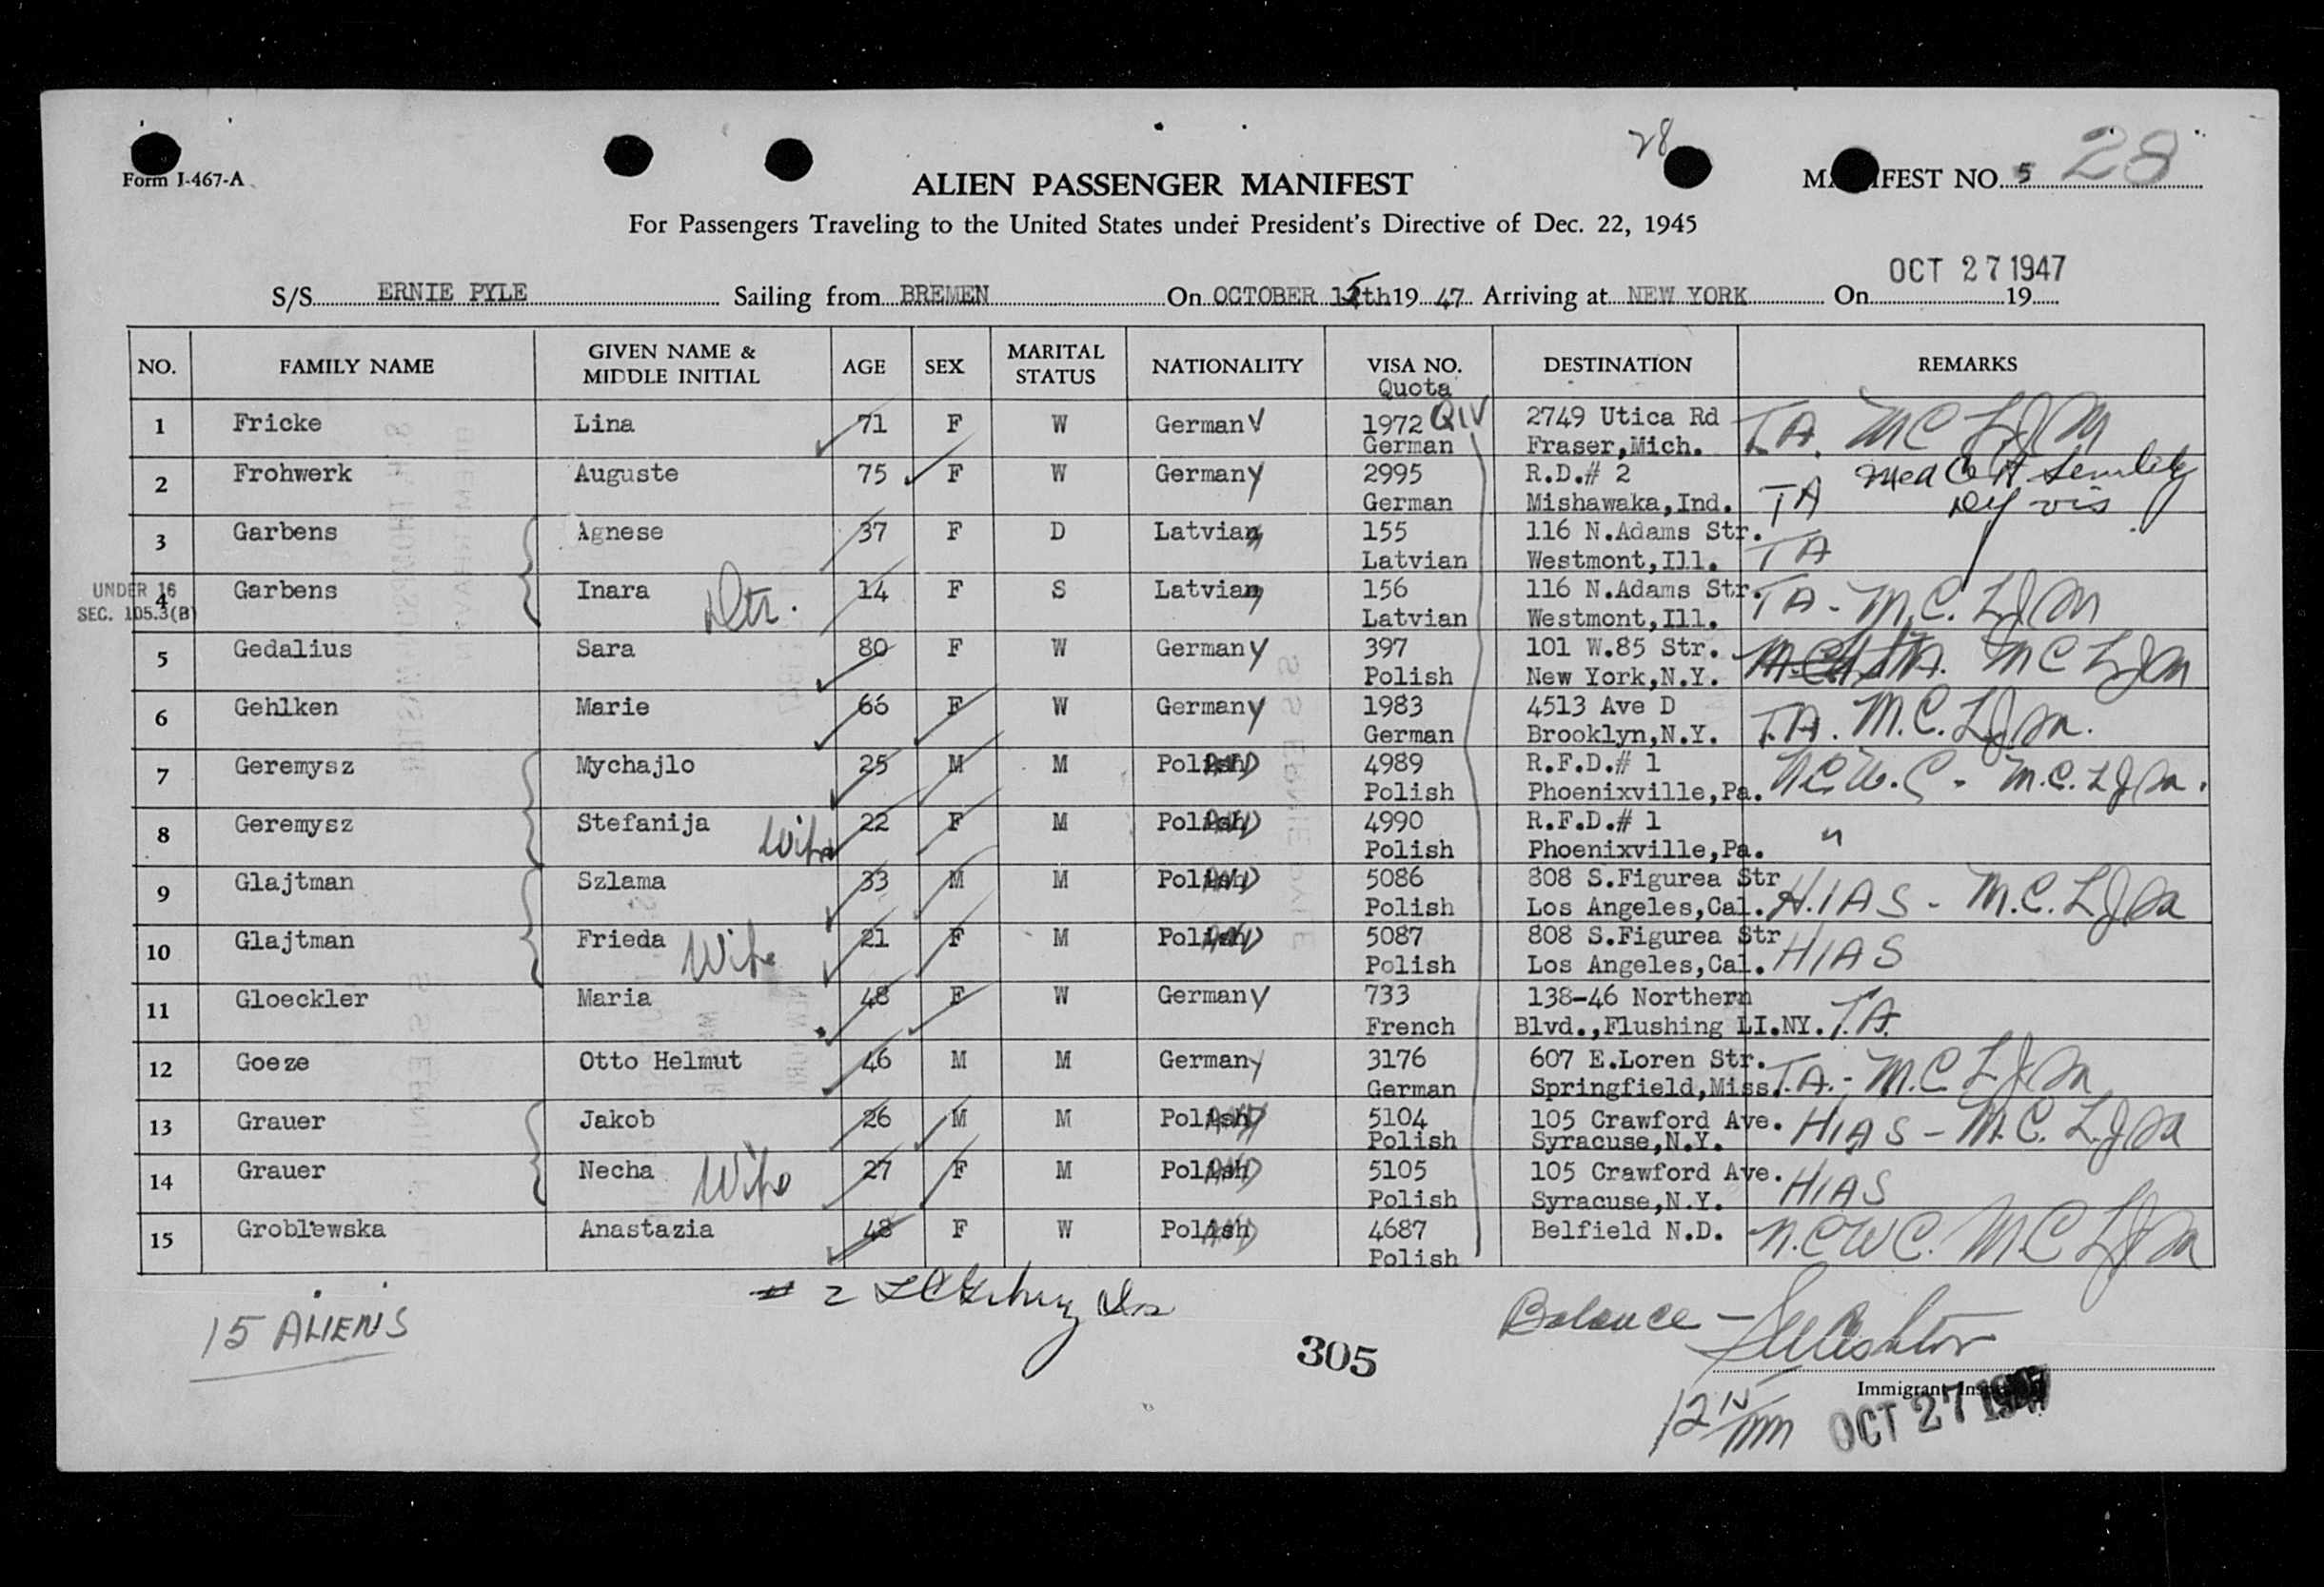 28
28
Form I-467-A
ALIEN PASSENGER MANIFEST
MANIFEST NO. 5
For Passengers Traveling to the United States under President's Directive of Dec. 22, 1945
OCT 27 1947
S/S ERNIE PYLE Sailing from BREMEN On OCTOBER 15th 19 47 Arriving at NEW YORK On 19
NO. FAMILY NAME GIVEN NAME & MIDDLE INITIAL AGE SEX MARITAL STATUS NATIONALITY VISA NO. Quota DESTINATION REMARKS
1 Fricke Lina 71 F W Germany 1972 QIV 2749 Utica Rd T.A. M C L J M
German Fraser,Mich.
2 Frohwerk Auguste 75 F W Germany 2995 R.D.# 2 Med
German Mishawaka,Ind. TA vis
3 Garbens Agnese 37 F D Latvia 155 116 N.Adams Str.
Latvian Westmont,Ill. TA
UNDER 16
SEC. 105.3(B)
4 Garbens Inara Dtr. 14 F S Latvia 156 116 N.Adams Str. TA - M.C. L J M
Latvian Westmont,Ill.
5 Gedalius Sara 80 F W Germany 397 101 W.85 Str. M C L J M
Polish New York,N.Y.
6 Gehlken Marie 66 F W Germany 1983 4513 Ave D T.A. M.C. L J M.
German Brooklyn,N.Y.
7 Geremysz Mychajlo 25 M M Poland 4989 R.F.D.# 1 N.C.W.C - M.C. L J M.
Polish Phoenixville,Pa.
8 Geremysz Stefanija Wife 22 F M Poland 4990 R.F.D.# 1 "
Polish Phoenixville,Pa.
9 Glajtman Szlama 33 M M Poland 5086 808 S.Figurea Str H.I.A.S - M.C. L J M
Polish Los Angeles,Cal.
10 Glajtman Frieda Wife 21 F M Poland 5087 808 S.Figurea Str HIAS
Polish Los Angeles,Cal.
11 Gloeckler Maria 48 F W Germany 733 138-46 Northern T.A.
French Blvd.,Flushing LI.NY.
12 Goeze Otto Helmut 46 M M Germany 3176 607 E.Loren Str. T.A. - M.C L J M
German Springfield,Miss.
13 Grauer Jakob 26 M M Poland 5104 105 Crawford Ave. HIAS - M.C. L J M
Polish Syracuse,N.Y.
14 Grauer Necha Wife 27 F M Poland 5105 105 Crawford Ave. HIAS
Polish Syracuse,N.Y.
15 Groblewska Anastazia 48 F W Poland 4687 Belfield N.D. N.C.W.C. M C L J M
Polish
# 2
15 ALIENS
305
Balance -
Immigrant Inspector
12 N
OCT 27 1947